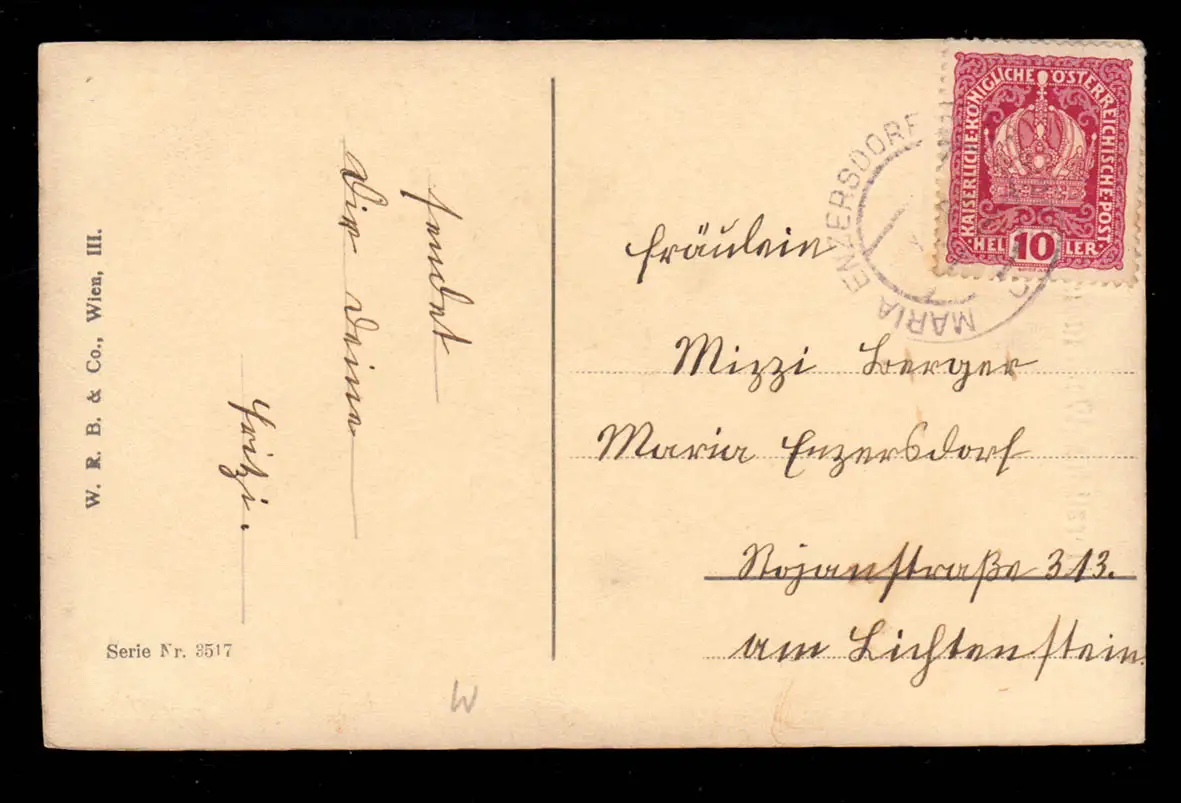 W. R. B. & Co., Wien, III.
Serie Nr. 3517
sendet
Dir Deine
Fritzi.
W
MARIA ENZERSDORF
KAISERLICHE·KÖNIGLICHE ÖSTERREICHISCHE·POST
HEL 10 LER
Fräulein
Mizzi Berger
Maria Enzersdorf
Rojanstraße 313.
am Lichtenstein.